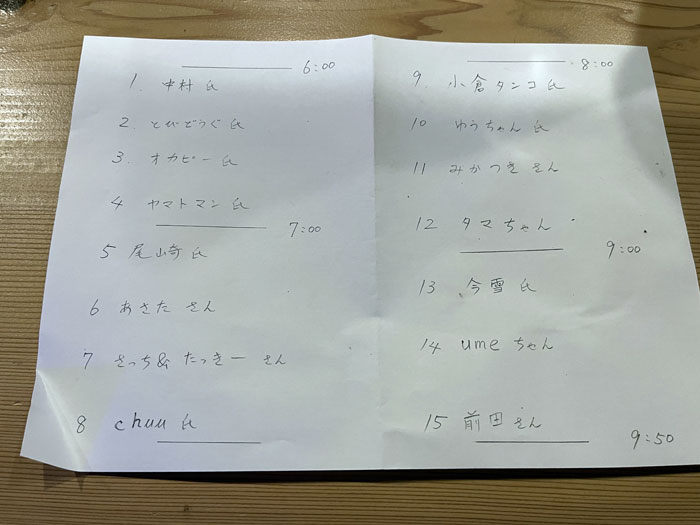 6:00
1. 中村 氏
2. とびどうぐ 氏
3. オカピー 氏
4 ヤマトマン 氏
7:00
5 尾山奇 氏
6 あさた さん
7 さっち& たっきー さん
8 chuu 氏
8:00
9. 小倉タンコ 氏
10 ゆうちゃん 氏
11 みかつき さん
12 タマちゃん
9:00
13 今雪 氏
14 ume ちゃん
15 前田 さん
9:50